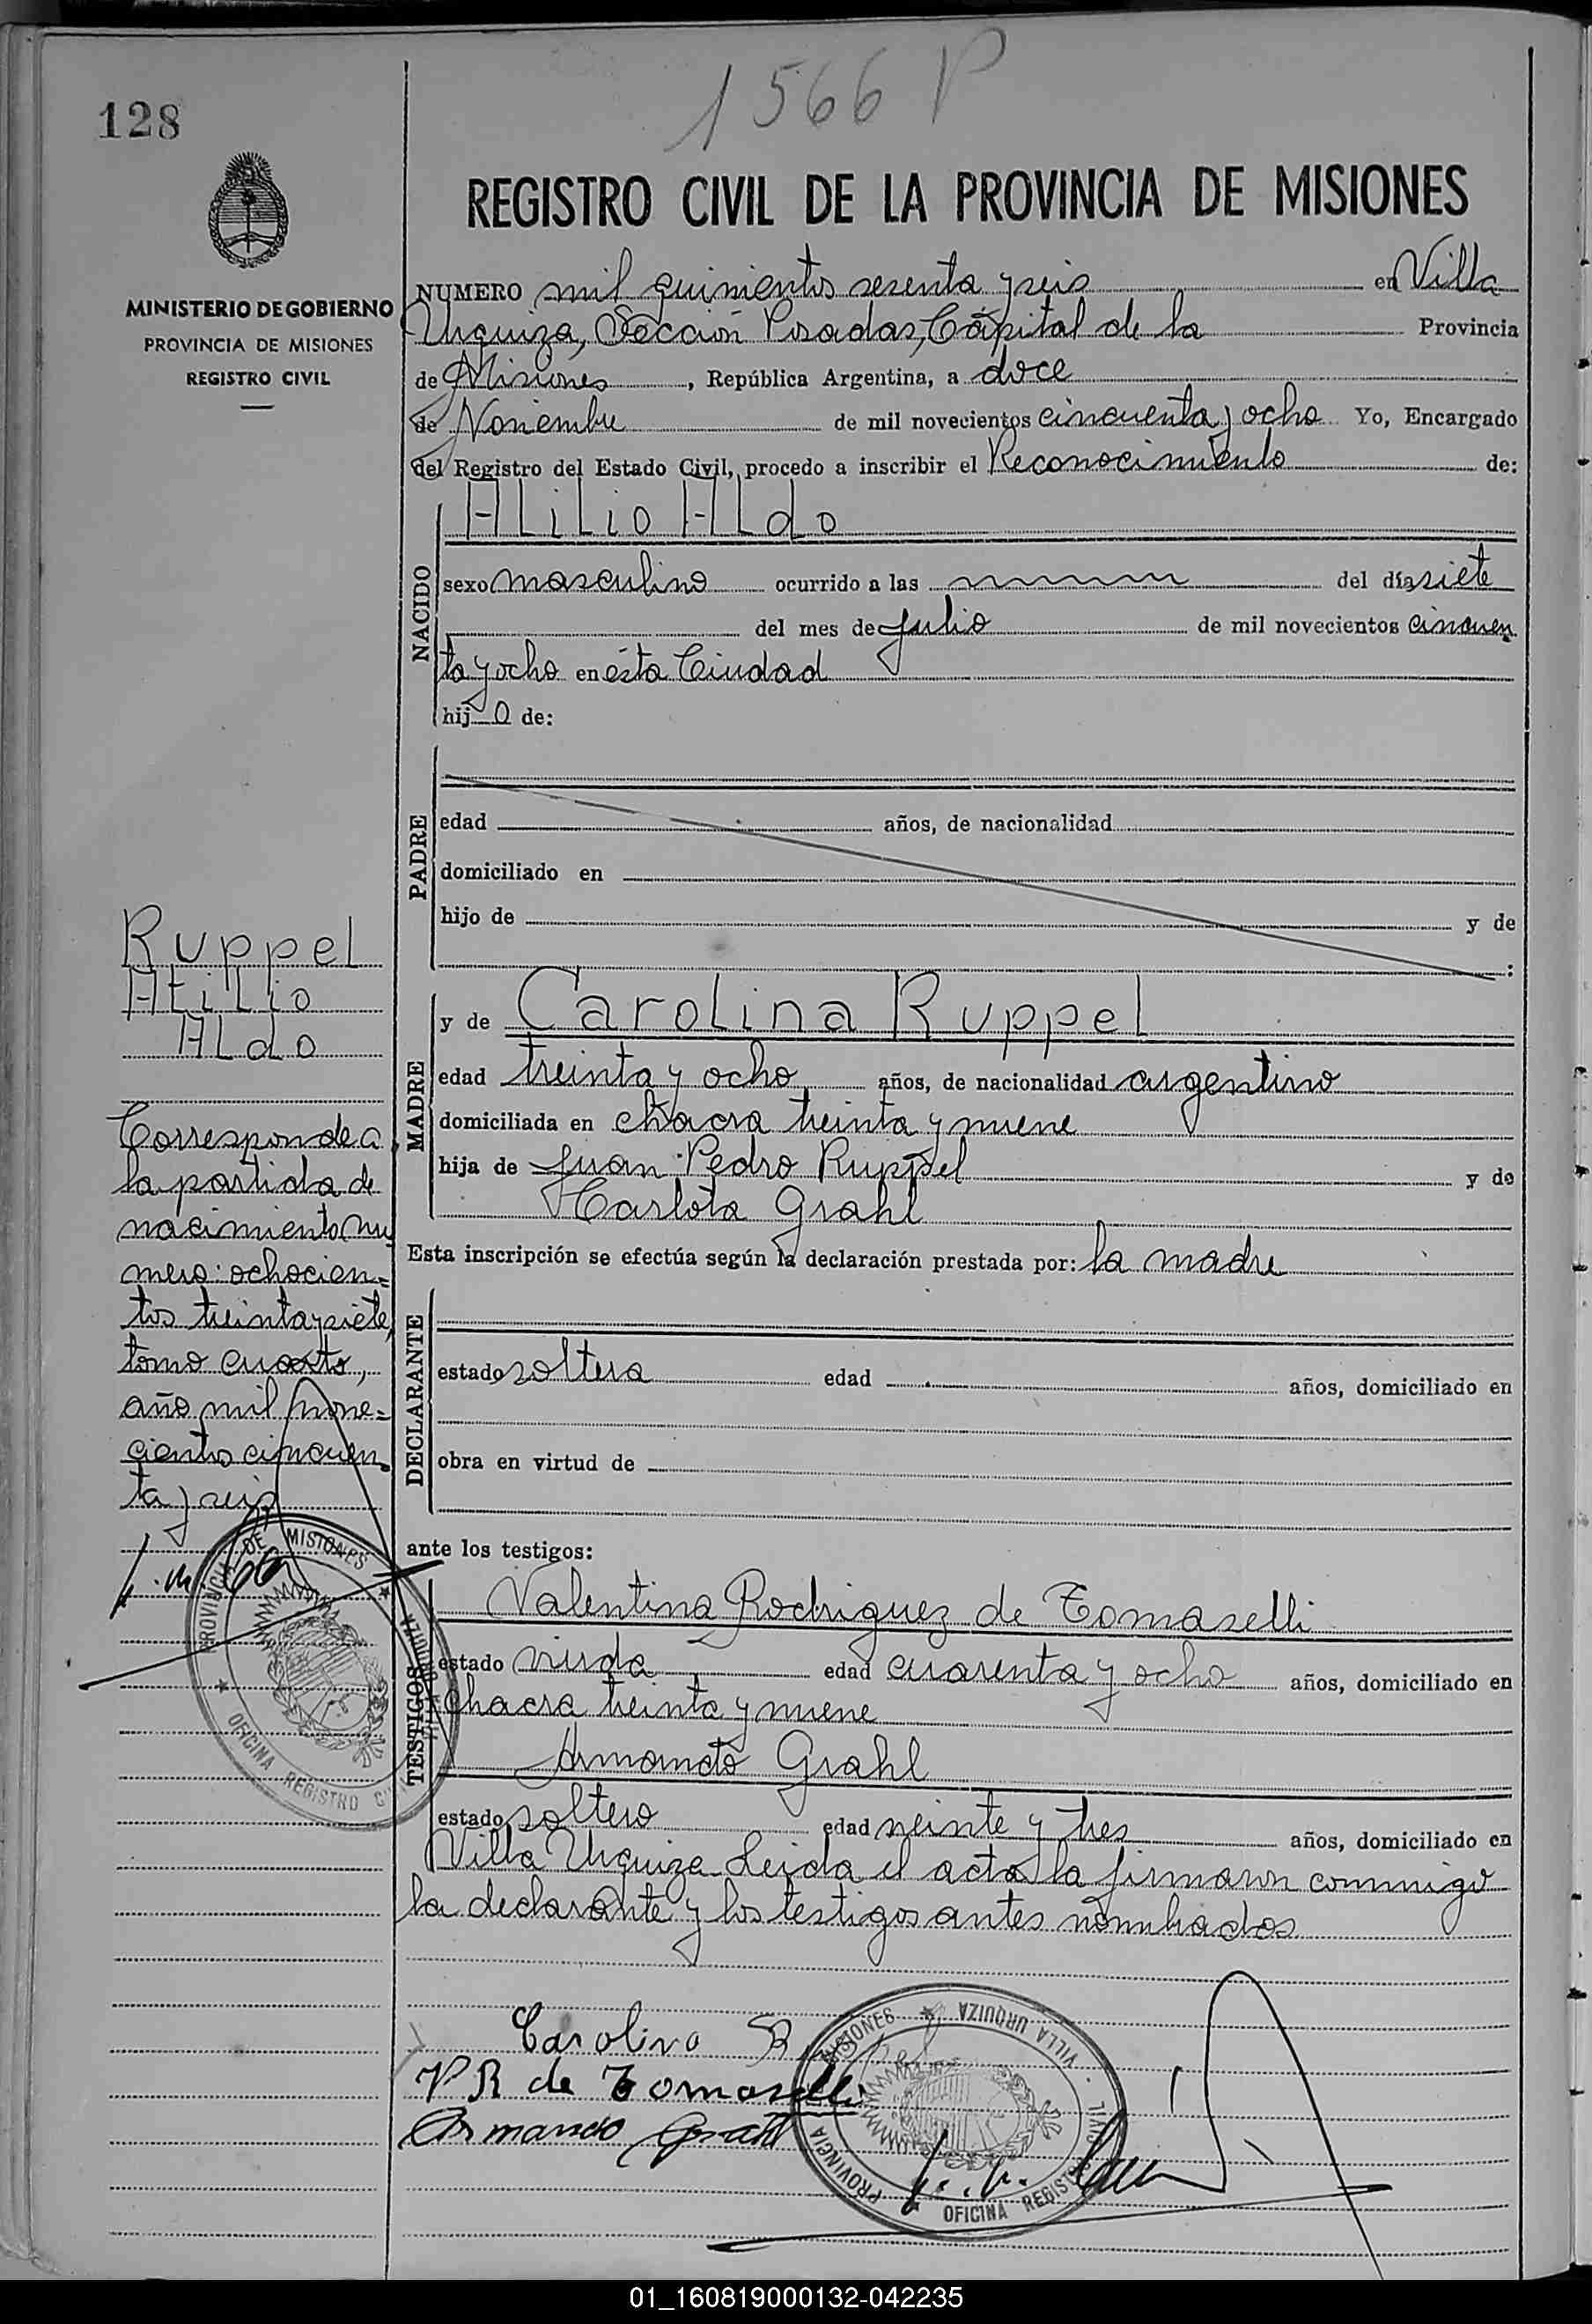 1566 P
128
REGISTRO CIVIL DE LA PROVINCIA DE MISIONES
MINISTERIO DE GOBIERNO
PROVINCIA DE MISIONES
REGISTRO CIVIL
NUMERO mil quinientos sesenta y seis en Villa
Urquiza, Sección Posadas, Capital de la Provincia
de Misiones, República Argentina, a doce
de Noviembre de mil novecientos cincuenta y ocho Yo, Encargado
del Registro del Estado Civil, procedo a inscribir el Reconocimiento de:
NACIDO
Atilio Aldo
sexo masculino ocurrido a las del día siete
del mes de Julio de mil novecientos cincuen
ta y ocho en ésta Ciudad
hijo de:
PADRE
edad años, de nacionalidad
domiciliado en
hijo de y de
:
MADRE
y de Carolina Ruppel
edad treinta y ocho años, de nacionalidad argentino
domiciliada en chacra treinta y nueve
hija de Juan Pedro Ruppel y de
Carlota Grahl
Esta inscripción se efectúa según la declaración prestada por: la madre
DECLARANTE
estado soltera edad años, domiciliado en
obra en virtud de
ante los testigos:
TESTIGOS
Valentina Rodriguez de Tomaselli
estado viuda edad cuarenta y ocho años, domiciliado en
chacra treinta y nueve
Armando Grahl
estado soltero edad veinte y tres años, domiciliado en
Villa Urquiza. Leida el acta la firmaron conmigo
la declarante y los testigos antes nombrados
Ruppel
Atilio
Aldo
Corresponde a
la partida de
nacimiento nu
mero: ochocien=
tos treinta y siete,
tomo cuarto,
año mil nove=
cientos cincuen
ta y seis
PROVINCIA DE MISIONES
OFICINA REGISTRO
Carolina R
V R de Tomaselli
Armando Grahl
PROVINCIA MISIONES
VILLA URQUIZA
OFICINA REGISTRO CIVIL
01_160819000132-042235